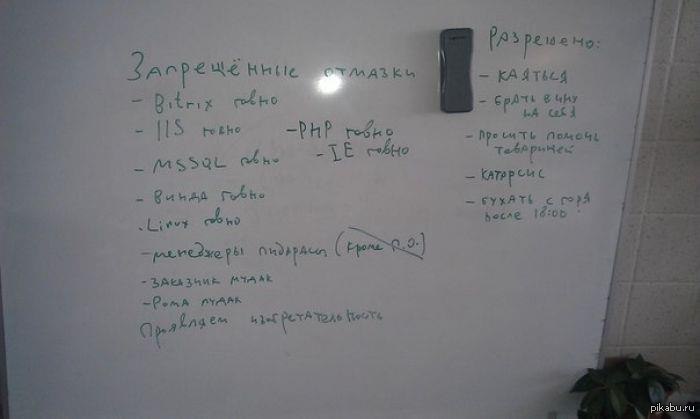 Запрещённые отмазки
- Bitrix говно
- IIS говно
- PHP говно
- MSSQL говно
- IE говно
- Винда говно
. Linux говно
- менеджеры пидарасы (кроме П.О.)
- заказчик мудак
- Рома мудак
Проявляем изобретательность
Разрешено:
- каяться
- брать вину
на себя
- просить помощь
товарищей
- катарсис
- бухать с горя
после 18:00
pikabu.ru